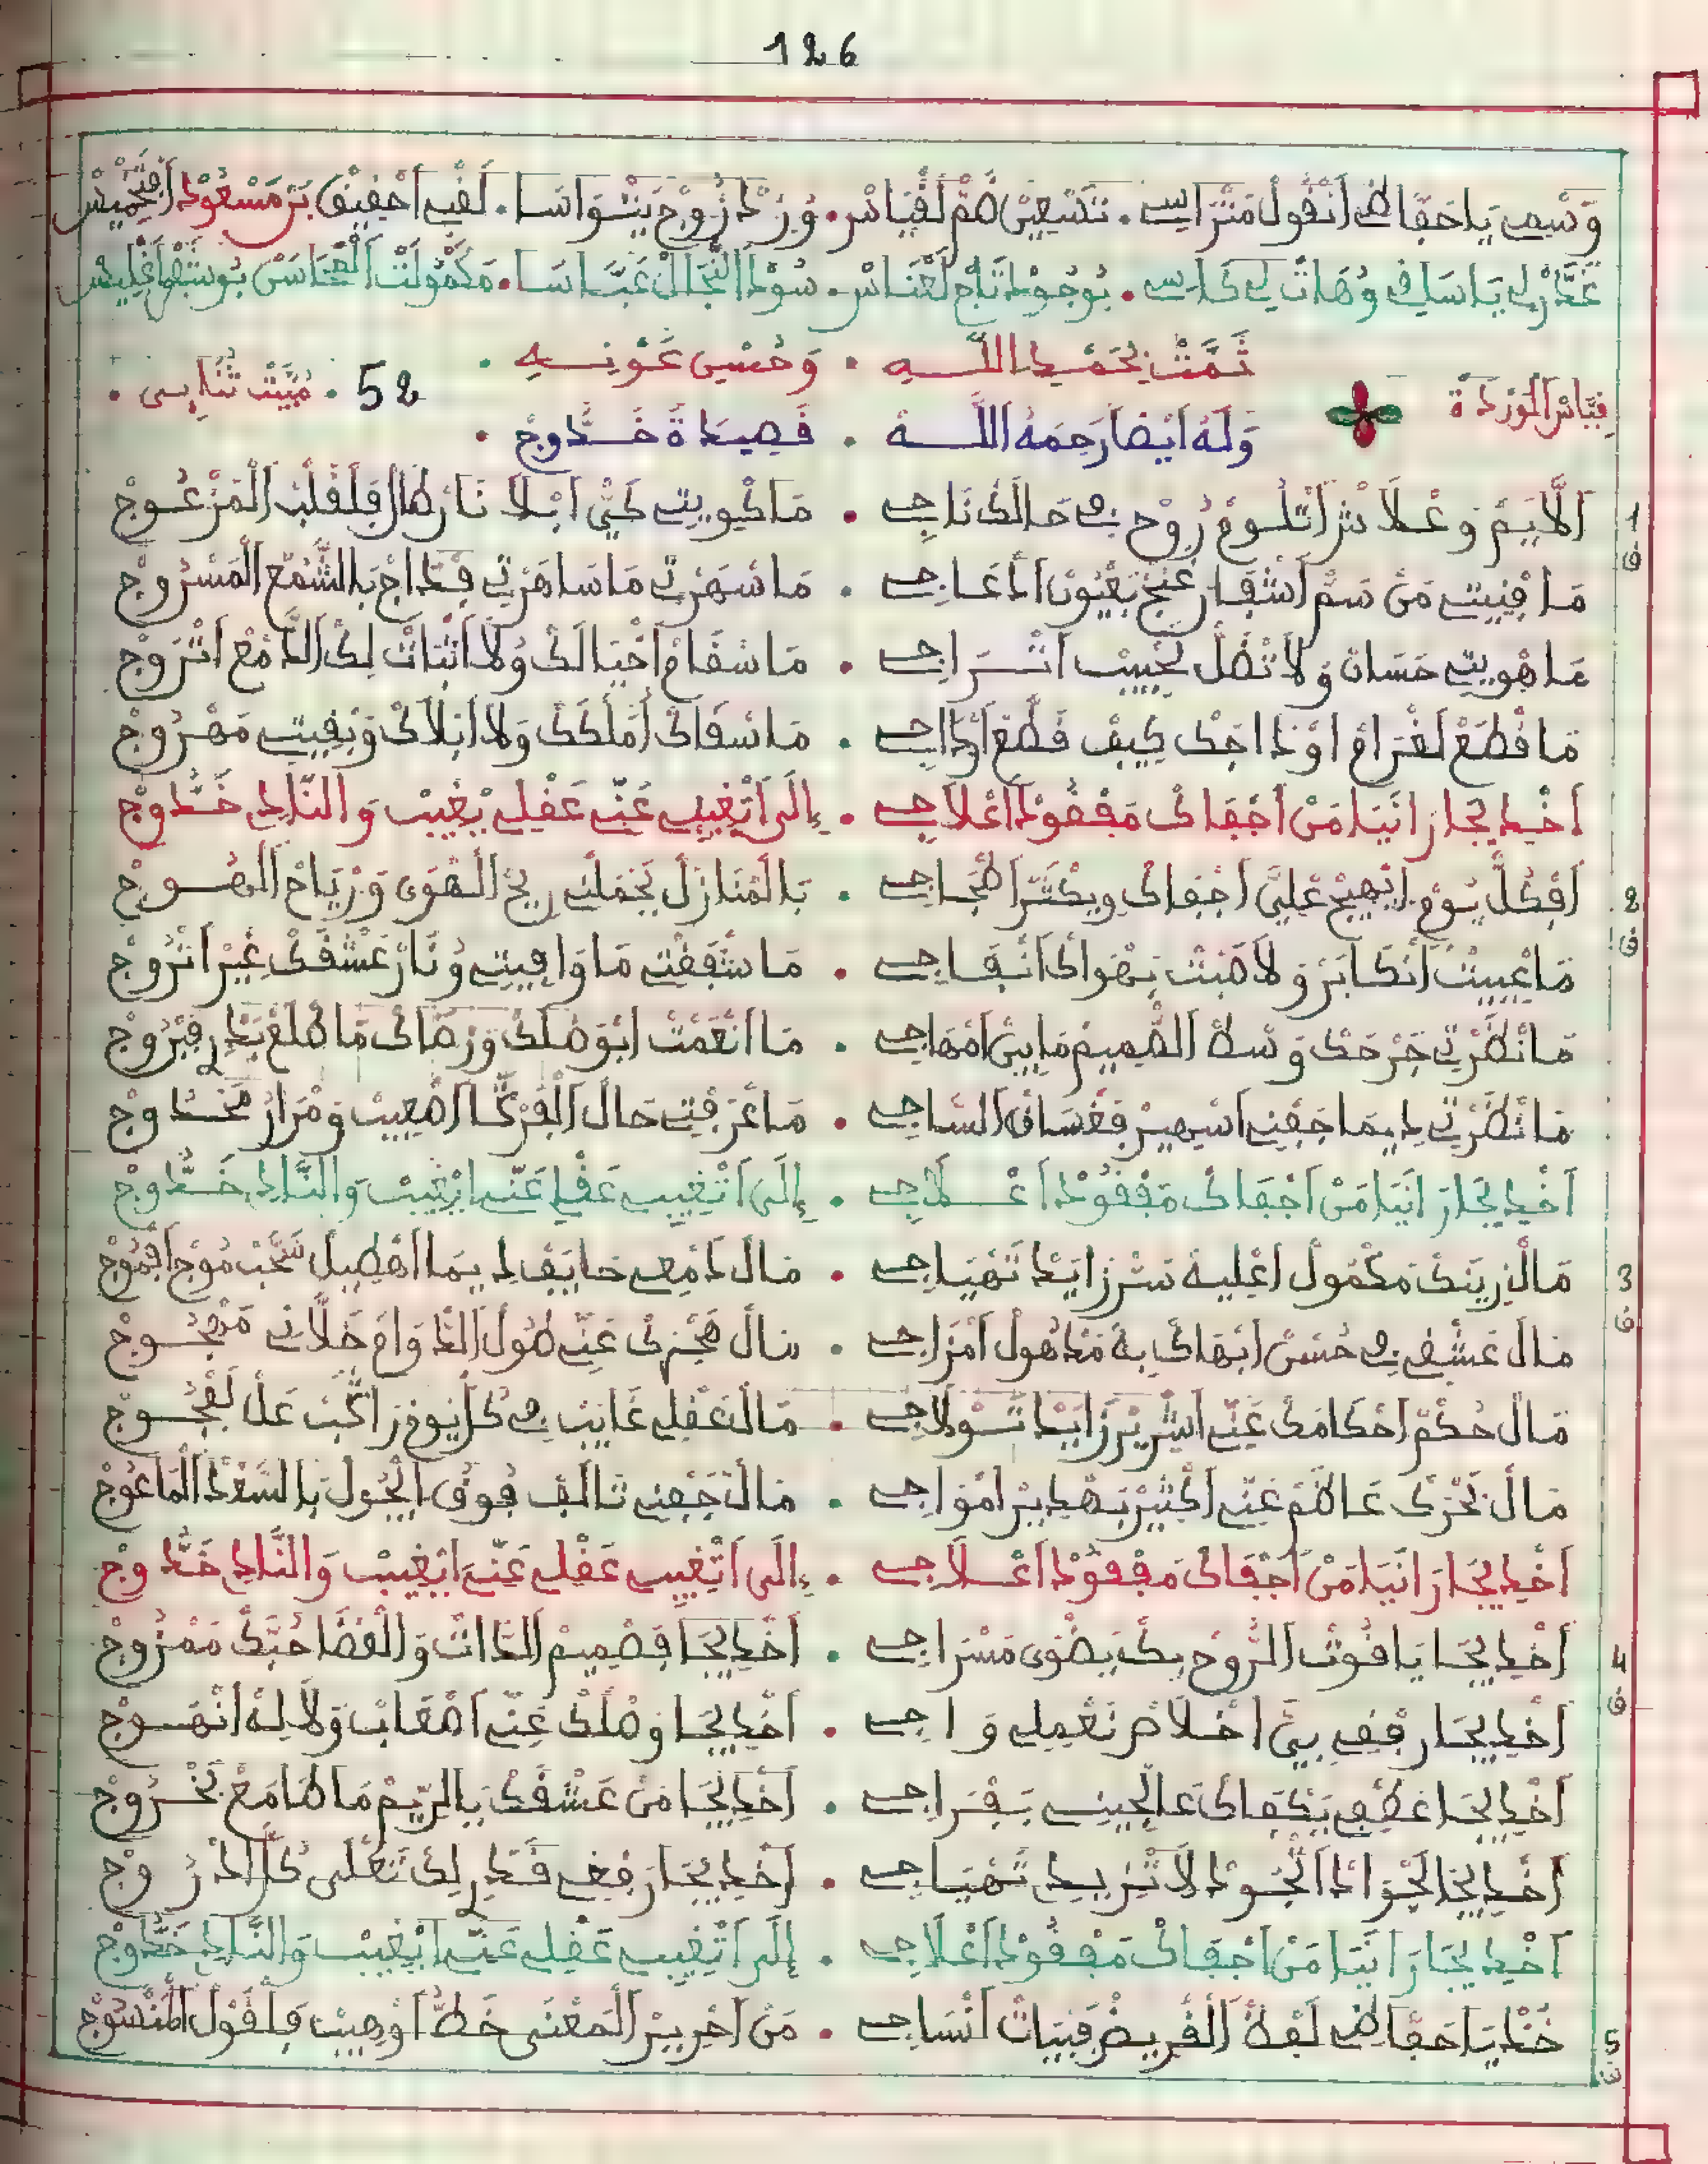 126
وَسْمِي يَا حَفَّاظِي أَنْقُولْ مَنْرَاسِي . تَسْعِينْ هُمْ لَقْيَاسْ . وُزِدْ زُوجْ يَنْسْوَاسَا . لَقْبِي أَحْقِيقْ بَنْ مَسْعُودْ
غَدَّرْ لِي يَا سَاقِي وُهَاتْ لِي كَاسِي . بُوجُودْ تَاجْ لَعْنَاسْ . سُودْ النْجَالْ عَبَّاسَا . مَكْمُولَتْ الْمْحَاسَنْ
تَمَّتْ بِحَمْدِ اللَّهِ . وَحُسْنِ عَوْنِهِ .
قِيَاسْ الْوَرْدَة
52 . مُبَيَّتْ ثُنَائِي .
وَلَهُ أَيْضًا رَحِمَهُ اللَّه . قَصِيدَةُ خَدُّوجْ .
1 أَلَّايَمْ وَعْلَاشْ أَتْلُومْ رُوحْ فِي حَالَكْ نَاجِي . مَا كْوِيتِي كَيِّي ابْلَا نَارْ طَالْ فَلْقَلْبْ الْمَزْعُوجْ
مَا فْنِيتِي مَنْ سَمْ أَشْفَارْ غُنْجْ بَعْيُونْ أَدْعَاجِي . مَا سْهَرْتِي مَا سَاهَرْتِي فْدَاجْ بِالشَّمْعْ الْمَسْرُوجْ
مَا هْوِيتِي حَسَانْ وَلَا تْضَلْ لَحْبِيبْ اتْرَاجِي . مَا سْقَامْ أَخْيَالَكْ وُلَا انْبَاتْ لِكْ الدَّمْعْ أَتْرَوَّجْ
مَا قْطَعْ لَغْرَامْ أَوْدَاجَكْ كِيفْ قْطَعْ أَوْدَاجِي . مَا سْقَاكْ أَمْلَكَكْ وَلَا ابْلَاكْ وَبْقِيتِي مَهْرُوجْ
أَخْدِيجَا رَانِيَا مَنْ أَجْفَاكْ مَفْقُودْ أَعْلَاجِي . إِلَى أَتْغِيبْ عَنِّي عَقْلِي يْغِيبْ وَالنَّادِي خَدُّوجْ
2 أَفْكُلْ يُومْ ايْهِيجْ عْلِيَّ أَجْفَاكْ وِيكْثَرْ أَضْجَاجِي . بَالْمْنَازَلْ يَحْمَلْنِي رِيحْ الْهْوَى وَرْيَاحْ الْهُوجْ
مَا عْيِيتْ أَنْكَابَرْ وَلَا هْنِيتْ بَهْوَاكْ أَنْفَاجِي . مَا شْفَقْتِي مَا وَافِيتِي وُنَارْ عَشْقَكْ غِيرْ أَتْرُوجْ
مَا نْظَرْتِي جَرْحَكْ وَسْطْ الصْمِيمْ مَا بِينْ أَمْهَاجِي . مَا انْعَمْتْ ابْوَصْلَكْ وَرْضَاكْ مَا طْلَعْ بَدْرِي فَبْرُوجْ
مَا نْظَرْتِي دِيمَا جَفْنِي أَسْهِيرْ فَغْسَاقْ السَّاجِي . مَا عْرَفْتِي حَالْ الْفَرْكَا أَصْعِيبْ وَمْرَارْ مَحْدُوجْ
أَخْدِيجَا رَانِيَا مَنْ أَجْفَاكْ مَفْقُودْ أَعْلَاجِي . إِلَى أَتْغِيبْ عَقْلِي عَنِّي ايْغِيبْ وَالنَّادِي خَدُّوجْ
3 مَالْ زِينَكْ مَكْمُولْ أَعْلِيهْ سَرْ زَايَدْ تَهْيَاجِي . مَالْ دَمْعِي خَايَفْ دِيمَا أَهْطِيلْ سُحْبْ مُوجْ أَفْمُوجْ
مَالْ عَشْقِي فِي حُسْنْ ابْهَاكْ بِهْ مَدْهُولْ أَمْزَاجِي . مَالْ هَجْرَكْ عَنِّي طُولْ الدْوَامْ خَلَّانِي مَهْجُوجْ
مَالْ حُكْمْ أَحْكَامَكْ عَنِّي أَشْرِيرْ زَايَدْ تَوْلَاجِي . مَالْ عَقْلِي غَايَبْ فِي كُلْ يُومْ رَاكَبْ عَلْ لَفْجُوجْ
مَالْ بَحْرَكْ عَاظَمْ عَنِّي أَكْثِيرْ بَهْدِيرْ أَمْوَاجِي . مَالْ جَفْنِي تَالَفْ فُوقْ الْحُولْ بِالسَّعْدْ الْمَاعُوجْ
أَخْدِيجَا رَانِيَا مَنْ أَجْفَاكْ مَفْقُودْ أَعْلَاجِي . إِلَى أَتْغِيبْ عَقْلِي عَنِّي ايْغِيبْ وَالنَّادِي خَدُّوجْ
4 أَخْدِيجَا يَا قُوتْ الرُّوحْ بِكْ يَضْوَى مَسْرَاجِي . أَخْدِيجَا فَصْمِيمْ الدَّاتْ وَالْعْضَا حُبَّكْ مَمْزُوجْ
أَخْدِيجَا رَفْقِي بِيَّ أَخْلَاصْ نَعْمِلِي وَاجِي . أَخْدِيجَا وَصْلَكْ عَنِّي أَصْعَابْ وَلَا لِهْ أَنْهُوجْ
أَخْدِيجَا عَطْفِي يَكْفَاكْ عَالْحْبِيبْ بَفْرَاجِي . أَخْدِيجَا مَنْ عَشْقَكْ يَالرِّيمْ مَا طَامَعْ نَخْرُوجْ
أَخْدِيجَا لَجْوَادْ الْجُودْ لَا تْزِيدِي تَهْيَاجِي . أَخْدِيجَا رَفْعِي قَدْرِي لِكْ نَعْلَى كُلْ أَدْرُوجْ
أَخْدِيجَا رَانِيَا مَنْ أَجْفَاكْ مَفْقُودْ أَعْلَاجِي . إِلَى أَتْغِيبْ عَقْلِي عَنِّي ايْغِيبْ وَالنَّادِي خَدُّوجْ
5 خُدْ يَا حَفَّاظِي لَغْةْ الْقْرِيضْ فَبْيَاتْ أَنْسَاجِي . مَنْ أَحْرِيرْ الْمَعْنَى خَطْ أَوْهِيبْ فَلْقَوْلْ الْمَنْسُوجْ